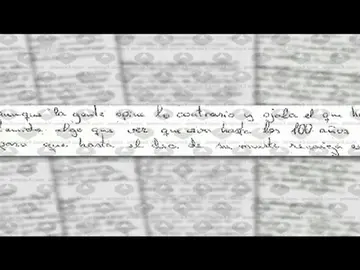 aunque la gente opine lo contrario y ojala el que ha
tenido algo que ver que viva hasta los 100 años
pero que hasta el dia de su muerte